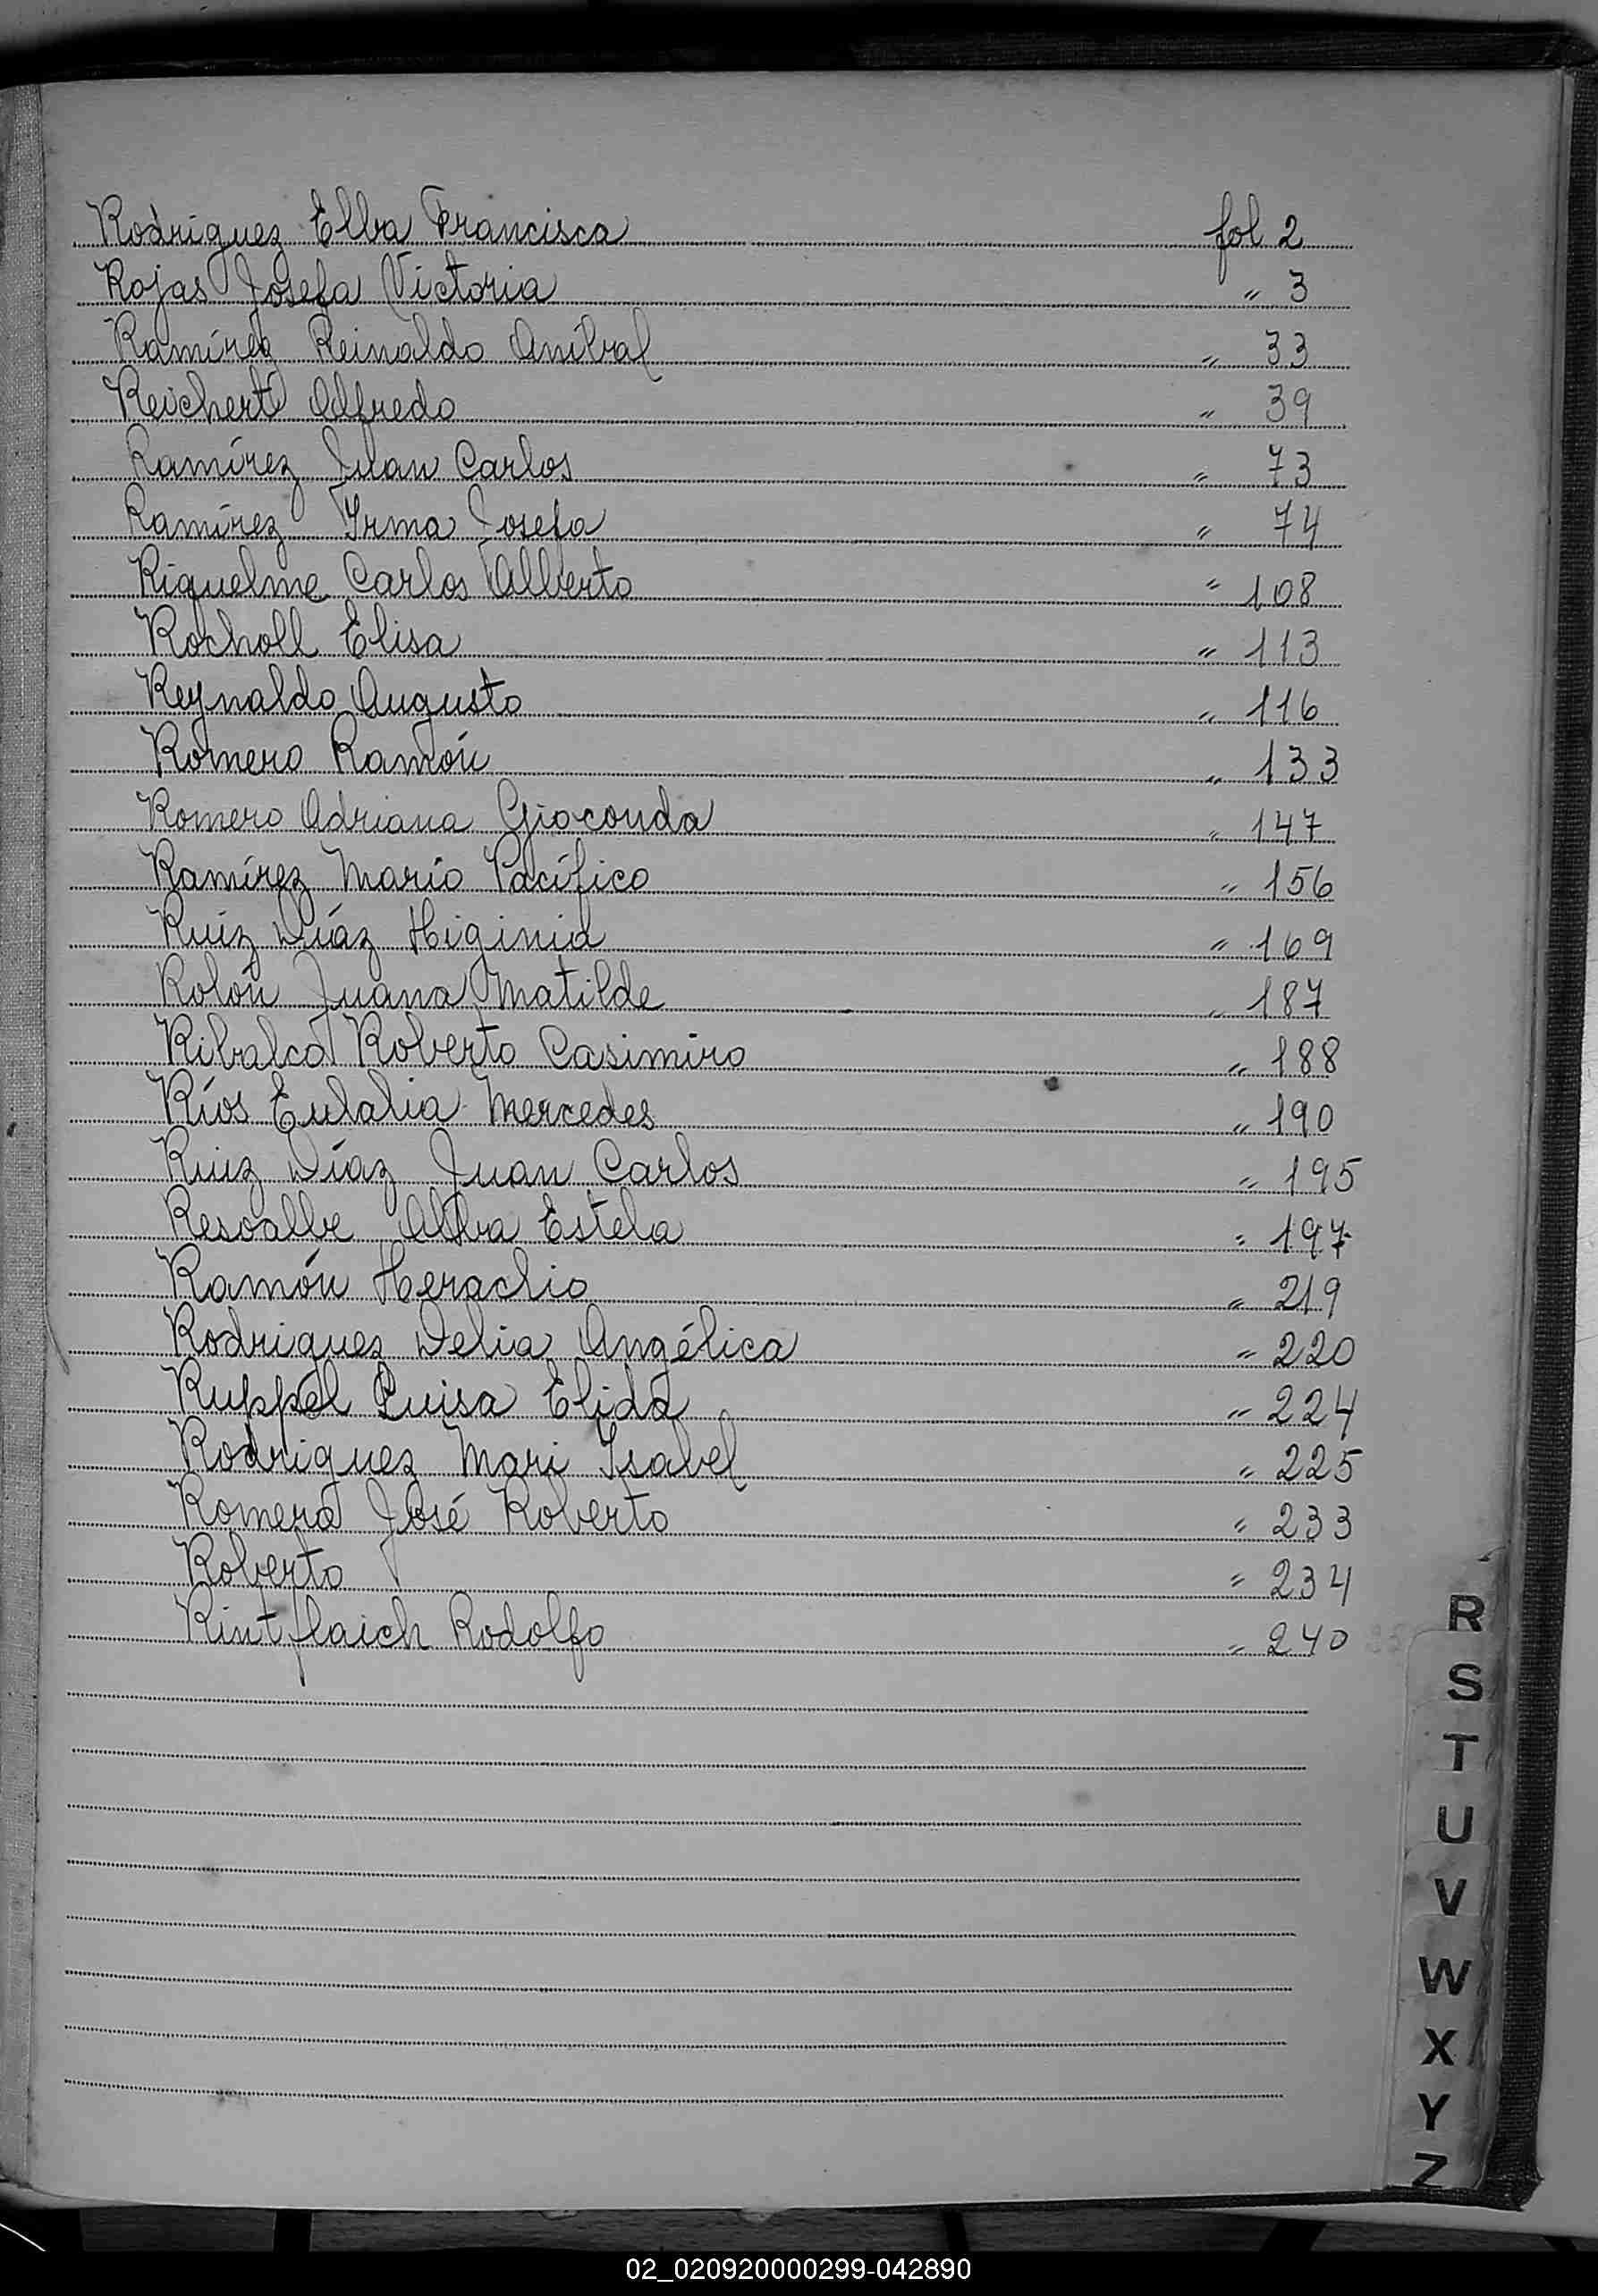 Rodriguez Elba Francisca fol 2
Rojas Josefa Victoria " 3
Ramírez Reinaldo Aníbal " 33
Reichert Alfredo " 39
Ramírez Juan Carlos " 73
Ramírez Irma Josefa " 74
Riquelme Carlos Alberto " 108
Rocholl Elisa " 113
Reynaldo Augusto " 116
Romero Ramón " 133
Romero Adriana Gioconda " 147
Ramírez Mario Pacífico " 156
Ruíz Díaz Higinia " 169
Rolón Juana Matilde " 187
Ribalco Roberto Casimiro " 188
Ríos Eulalia Mercedes " 190
Ruiz Díaz Juan Carlos " 195
Resoalbe Alba Estela " 197
Ramón Heraclio " 219
Rodriguez Delia Angélica " 220
Ruppel Luisa Elida " 224
Rodriguez Mari Isabel " 225
Romero José Roberto " 233
Roberto " 234
Rintflaich Rodolfo " 240
R
S
T
U
V
W
X
Y
Z
02_020920000299-042890